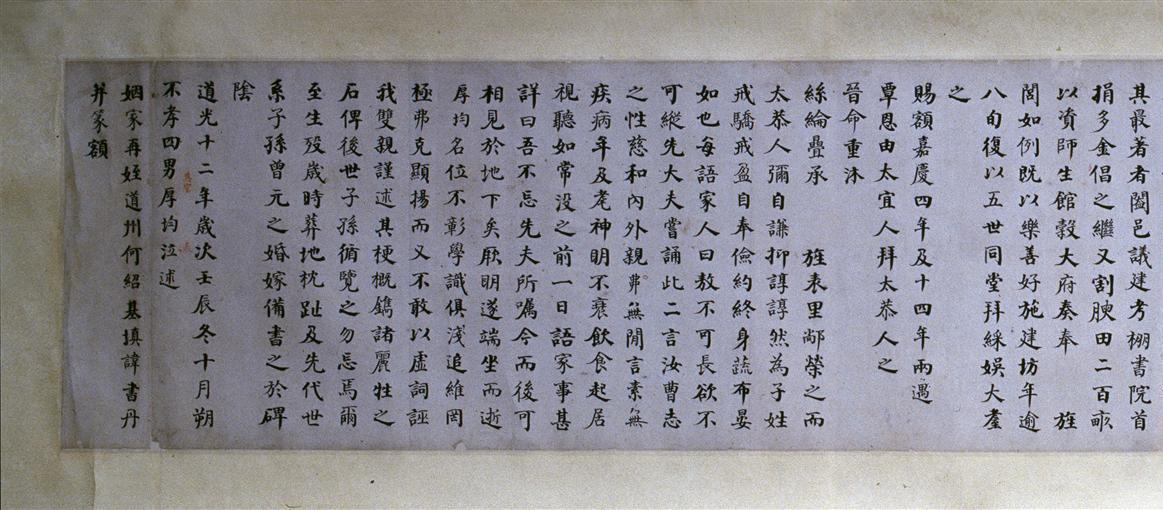 其最著者闔邑議建考棚書院首
捐多金倡之繼又割腴田二百畝
以資師生館穀大府奏奉 旌
閭如例既以樂善好施建坊年逾
八旬復以五世同堂拜綵娛大耋
之
賜額嘉慶四年及十四年兩遇
覃恩由太宜人拜太恭人之
晉命重沐
絲綸疊承 旌表里鄰榮之而
太恭人彌自謙抑諄諄然為子姓
戒驕戒盈自奉儉約終身蔬布晏
如也每語家人曰敖不可長欲不
可縱先大夫嘗誦此二言汝曹志
之性慈和內外親弗無閒言素無
疾病年及耄神明不衰飲食起居
視聽如常沒之前一日語家事甚
詳曰吾不忘先夫所囑今而後可
相見於地下矣厥明遂端坐而逝
厚均名位不彰學識俱淺追維罔
極弗克顯揚而又不敢以虛詞誣
我雙親謹述其梗概鐫諸麗牲之
石俾後世子孫循覽之勿忘焉爾
至生歿歲時葬地枕趾及先代世
系子孫曾元之婚嫁備書之於碑
陰
道光十二年歲次壬辰冬十月朔
不孝四男厚均泣述
姻家再姪道州何紹基填諱書丹
并篆額